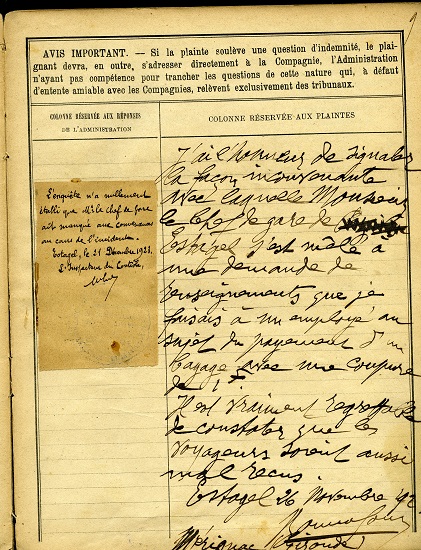 AVIS IMPORTANT. — Si la plainte soulève une question d'indemnité, le plai-
gnant devra, en outre, s'adresser directement à la Compagnie, l'Administration
n'ayant pas compétence pour trancher les questions de cette nature qui, à défaut
d'entente amiable avec les Compagnies, relèvent exclusivement des tribunaux.
COLONNE RÉSERVÉE AUX RÉPONSES
DE L'ADMINISTRATION
L'enquête n'a nullement
établi que Mr le chef de gare
ait manqué aux convenances
au cours de l'incident.
Estagel, le 21 Décembre 1921.
L'Inspecteur du Contrôle,
COLONNE RÉSERVÉE AUX PLAINTES
J'ai l'honneur de signaler
la façon inconvenante
avec laquelle Monsieur
le chef de gare de
Estagel s'est mêlé à
une demande de
renseignements que je
faisais à un employé au
sujet du payement d'un
bagage avec une coupure
de 1f
Il est vraiment regrettable
de constater que les
voyageurs soient aussi
mal reçus.
Estagel 26 Novembre 192
Mérignac Gironde